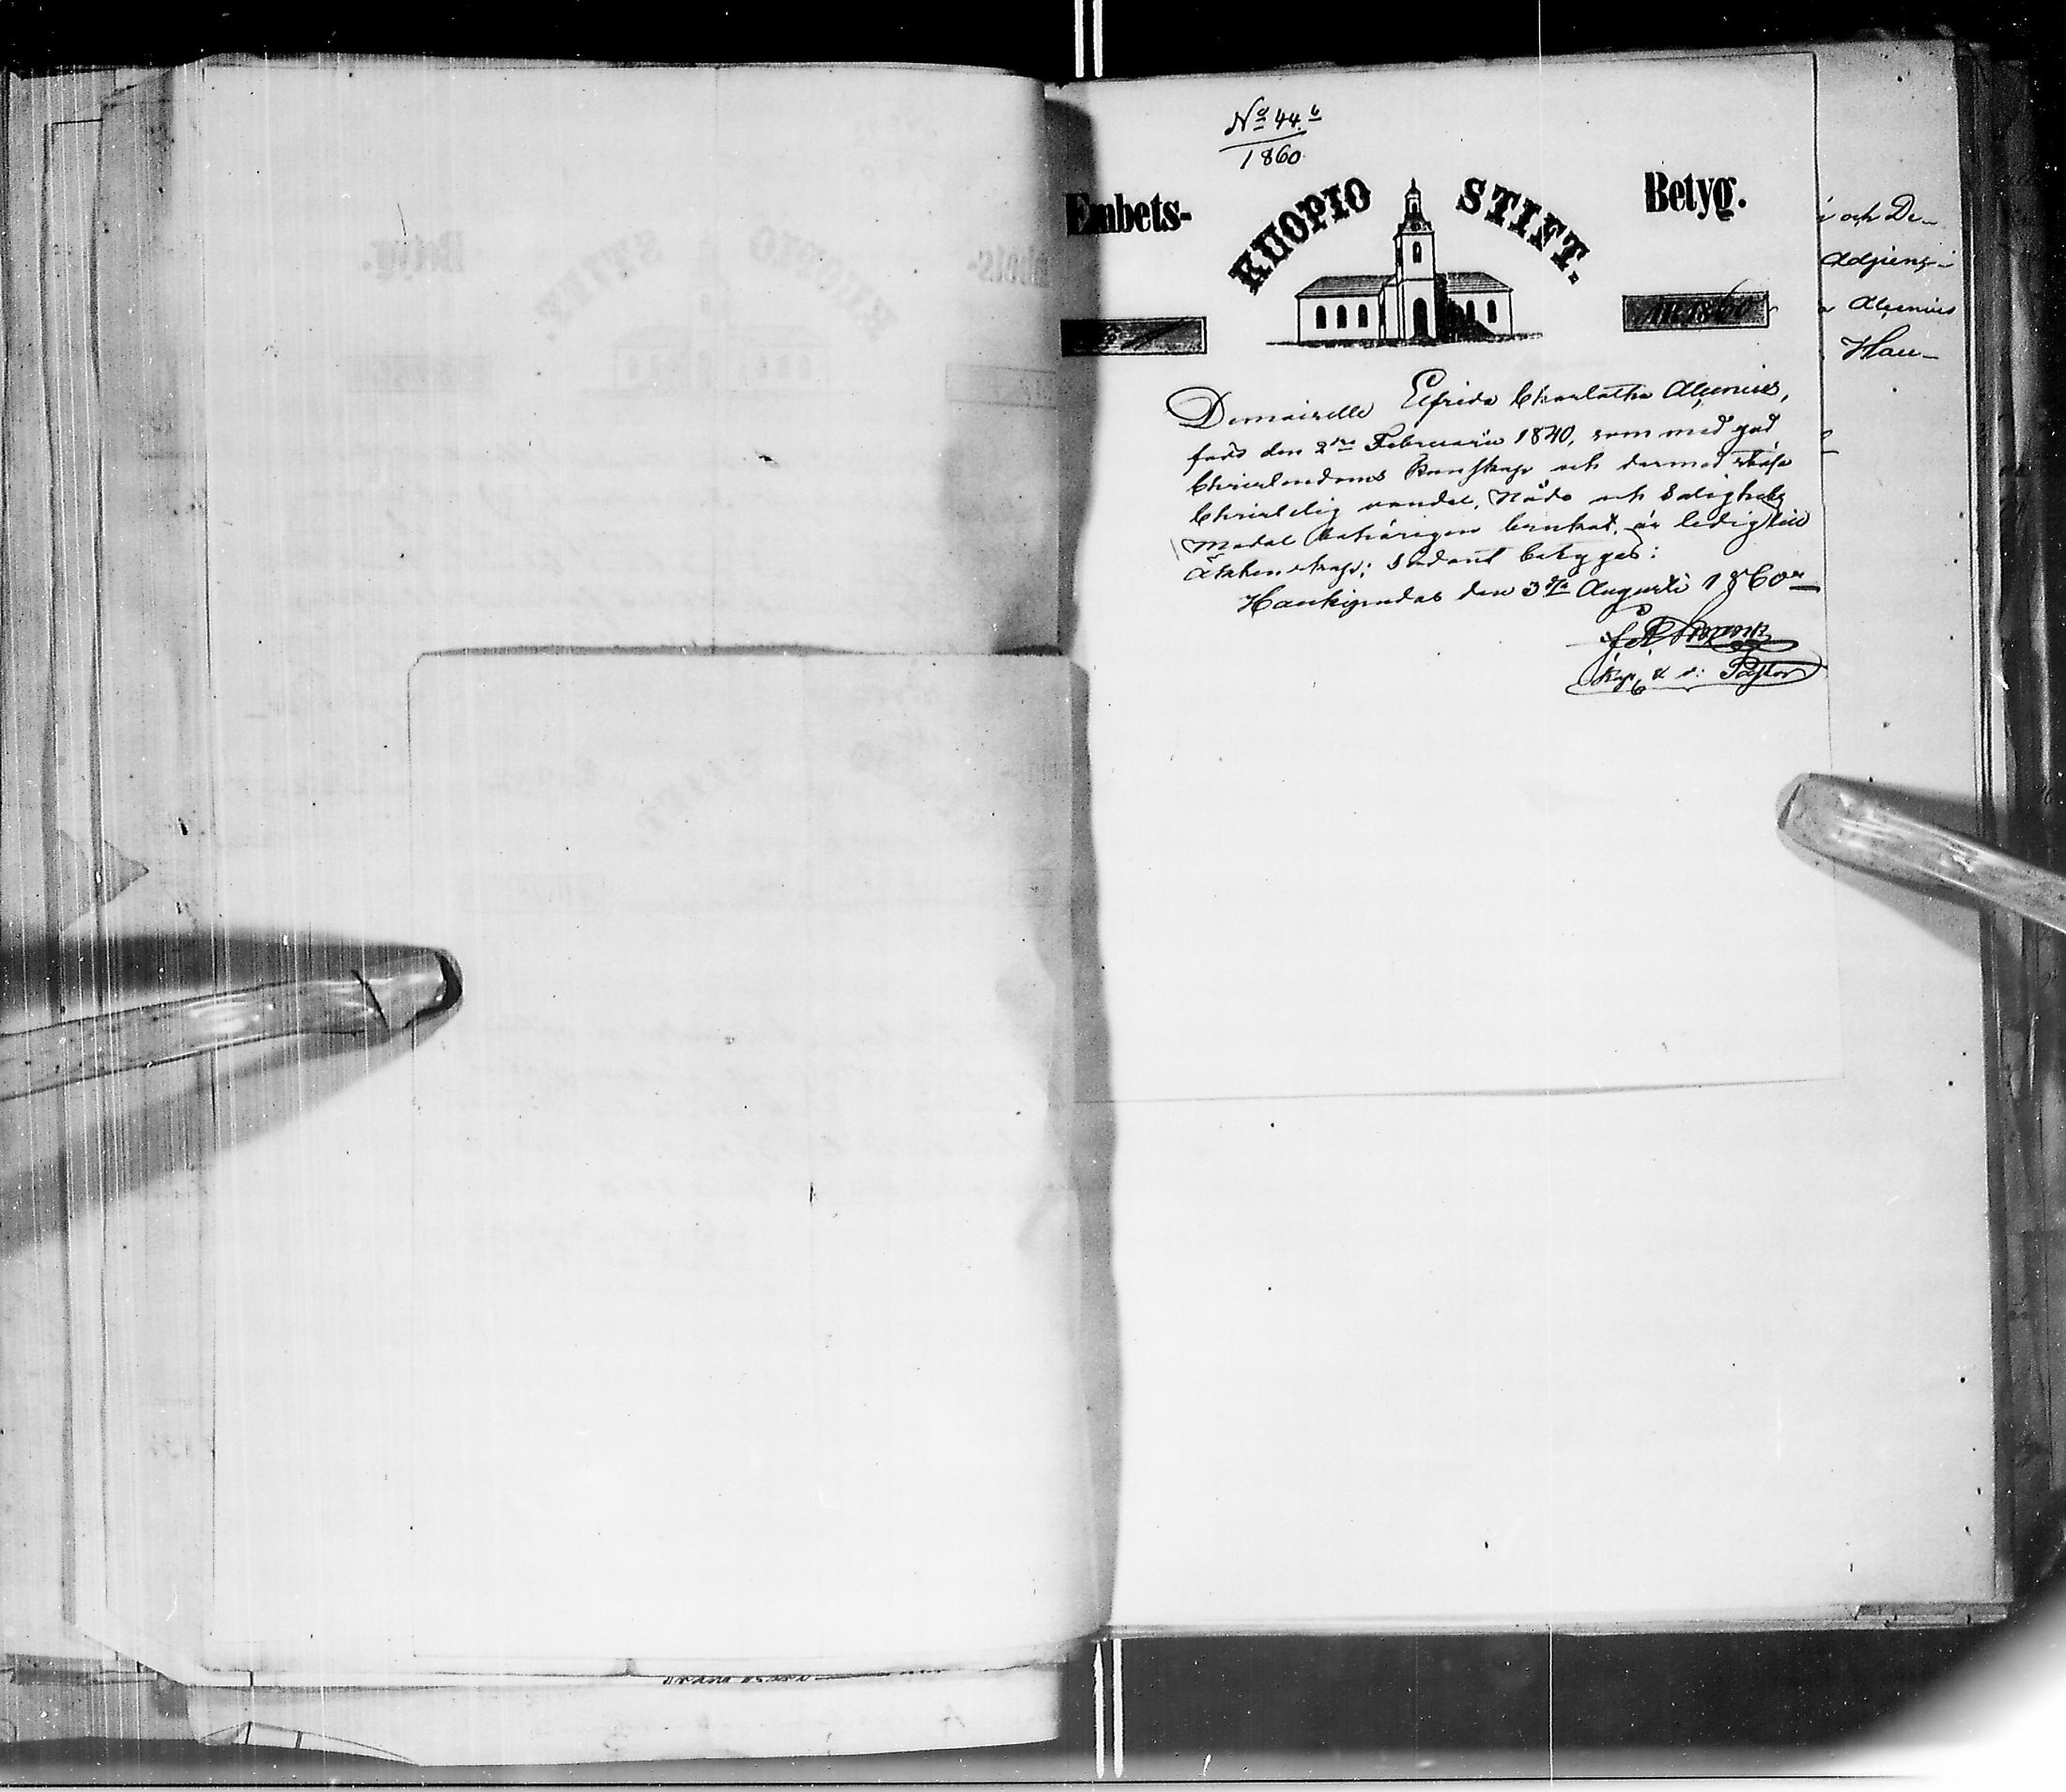 No 44. b
1860.
Embets- KUOPIO STIFT. Betyg.
År 1860
Demoiselle Elfrida Charlotha Alcenius,
född den 2dra Februarii 1840, som med god
Christendoms kunskap och dermed
Christelig vandel, Nåde och Salighets
Medel behörigen brukat, är ledig till
Äktenskap; sådant betygas:
Haukipudas den 3dje Augusti 1860
Kap. & v: Pastor
i och De-
Adjung-
Alcenius
Hau-